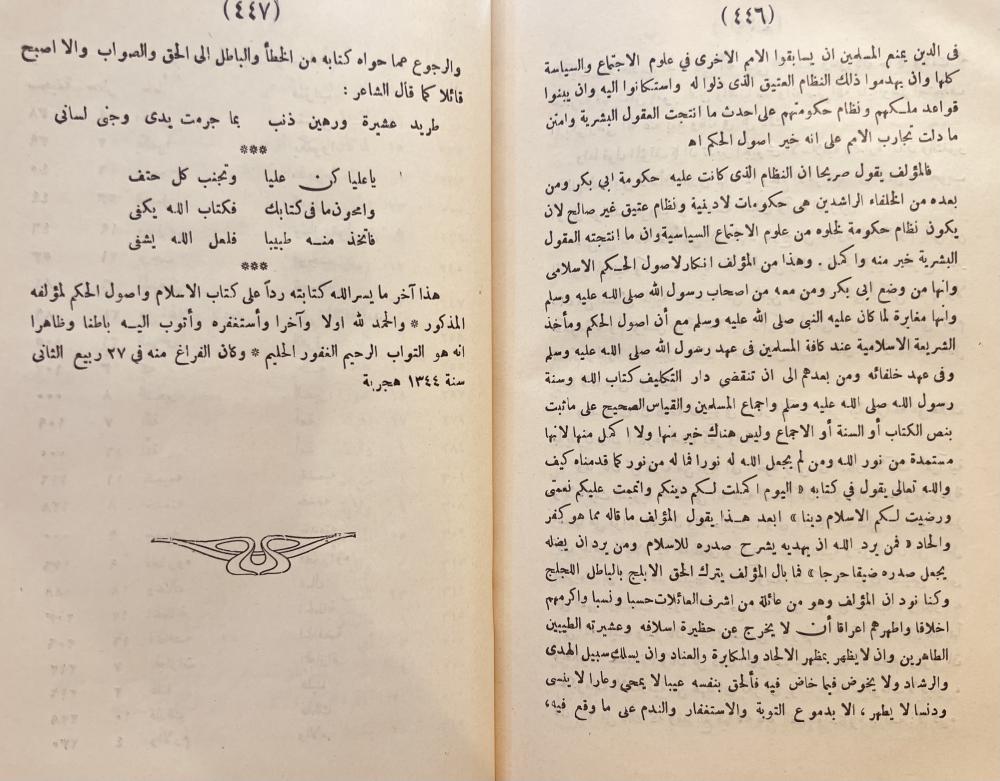 (٤٤٦)
فى الدين يمنع المسلمين ان يسابقوا الامم الاخرى في علوم الاجتماع والسياسة
كلها وان يهدموا ذلك النظام العتيق الذى ذلوا له واستكانوا اليه وان يبنوا
قواعد ملكهم ونظام حكومتهم على احدث ما انتجت العقول البشرية وامتن
ما دلت تجارب الامم على انه خير اصول الحكم اه
فالمؤلف يقول صريحا ان النظام الذى كانت عليه حكومة ابي بكر ومن
بعده من الخلفاء الراشدين هى حكومات لادينية ونظام عتيق غير صالح لان
يكون نظام حكومة لخلوه من علوم الاجتماع السياسية وان ما انتجته العقول
البشرية خير منه واكمل . وهذا من المؤلف انكار لاصول الحكم الاسلامى
وانها من وضع ابى بكر ومن معه من اصحاب رسول الله صلى الله عليه وسلم
وانها مغايرة لما كان عليه النبى صلى الله عليه وسلم مع أن اصول الحكم ومأخذ
الشريعة الاسلامية عند كافة المسلمين فى عهد رسول الله صلى الله عليه وسلم
وفى عهد خلفائه ومن بعدهم الى ان تنقضى دار التكليف كتاب الله وسنة
رسول الله صلى الله عليه وسلم واجماع المسلمين والقياس الصحيح على ماثبت
بنص الكتاب أو السنة أو الاجماع وليس هناك خير منها ولا اكمل منها لانها
مستمدة من نور الله ومن لم يجعل الله له نورا فما له من نور كما قدمناه كيف
والله تعالى يقول في كتابه « اليوم اكملت لكم دينكم واتممت عليكم نعمتى
ورضيت لكم الاسلام دينا » ابعد هذا يقول المؤلف ما قاله مما هو كفر
والحاد « فمن يرد الله ان يهديه يشرح صدره للاسلام ومن يرد ان يضله
يجعل صدره ضيقا حرجا » فما بال المؤلف يترك الحق الابلج بالباطل اللجلج
وكنا نود ان المؤلف وهو من عائلة من اشرف العائلات حسبا ونسبا واكرمهم
اخلاقا واطهرهم اعراقا أن لا يخرج عن حظيرة اسلافه وعشيرته الطيبين
الطاهرين وان لا يظهر بمظهر الالحاد والمكابرة والعناد وان يسلك سبيل الهدى
والرشاد ولا يخوض فيما خاض فيه فألحق بنفسه عيبا لا يمحي وعارا لا ينسى
ودنسا لا يطهر ، الا بدموع التوبة والاستغفار والندم على ما وقع فيه،
(٤٤٧)
والرجوع عما حواه كتابه من الخطأ والباطل الى الحق والصواب والا اصبح
قائلا كما قال الشاعر :
طريد عشيرة ورهين ذنب بما جرمت يدى وجنى لسانى
***
ياعليا كن عليا وتجنب كل حتف
وامحون ما فى كتابك فكتاب الله يكفى
فاتخذ منه طبيبا فلعل الله يشفى
***
هذا آخر ما يسر الله كتابته رداً على كتاب الاسلام واصول الحكم لمؤلفه
المذكور * والحمد لله اولا وآخرا وأستغفره وأتوب اليه باطنا وظاهرا
انه هو التواب الرحيم الغفور الحليم * وكان الفراغ منه في ٢٧ ربيع الثانى
سنة ١٣٤٤ هجرية